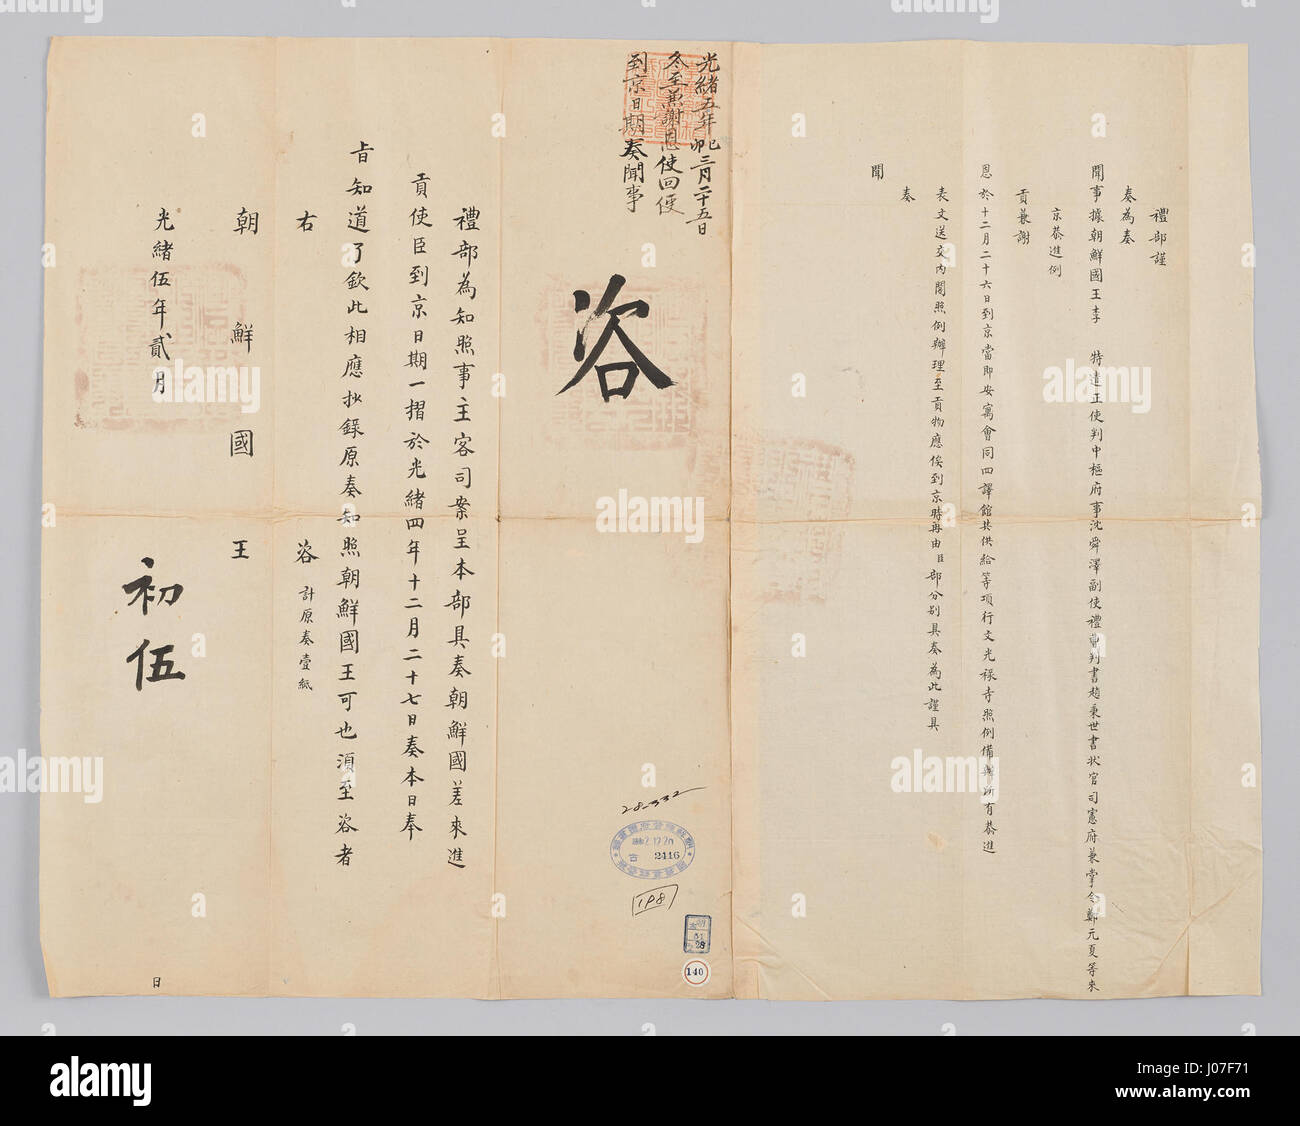 禮部謹
奏為奏
聞事據朝鮮國王李 特遣正使判中樞府事沈舜澤副使禮曹判書趙秉世書狀官司憲府兼掌令鄭元夏等來
京恭進例
貢兼謝
恩於十二月二十六日到京當即安寓會同四譯館其供給等項行文光祿寺照例備辦所有恭進
表文送交內閣照例辦理至貢物應俟到京時再由臣部分別具奏為此謹具
奏
聞
光緒五年己卯三月二十五日
冬至兼謝恩使回便
到京日期奏聞事
咨
禮部為知照事主客司案呈本部具奏朝鮮國差來進
貢使臣到京日期一摺於光緒四年十二月二十七日奏本日奉
旨知道了欽此相應抄錄原奏知照朝鮮國王可也須至咨者
右 咨 計原奏壹紙
朝鮮國王
光緒伍年貳月 初伍 日
28-332
2416
古
198
28
140
alamy
alamy
J07F71
www.alamy.com